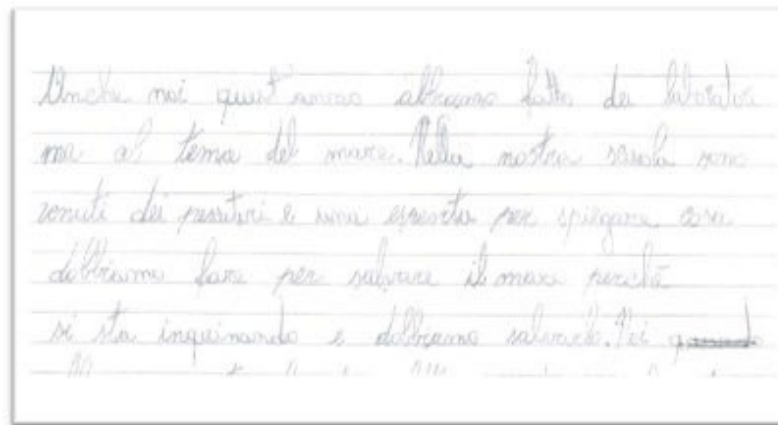 Anche noi quest'anno abbiamo fatto dei laboratori
ma al tema del mare. Nella nostra scuola sono
venuti dei pescatori e una esperta per spiegare cosa
dobbiamo fare per salvare il mare perché
si sta inquinando e dobbiamo salvarlo. Voi